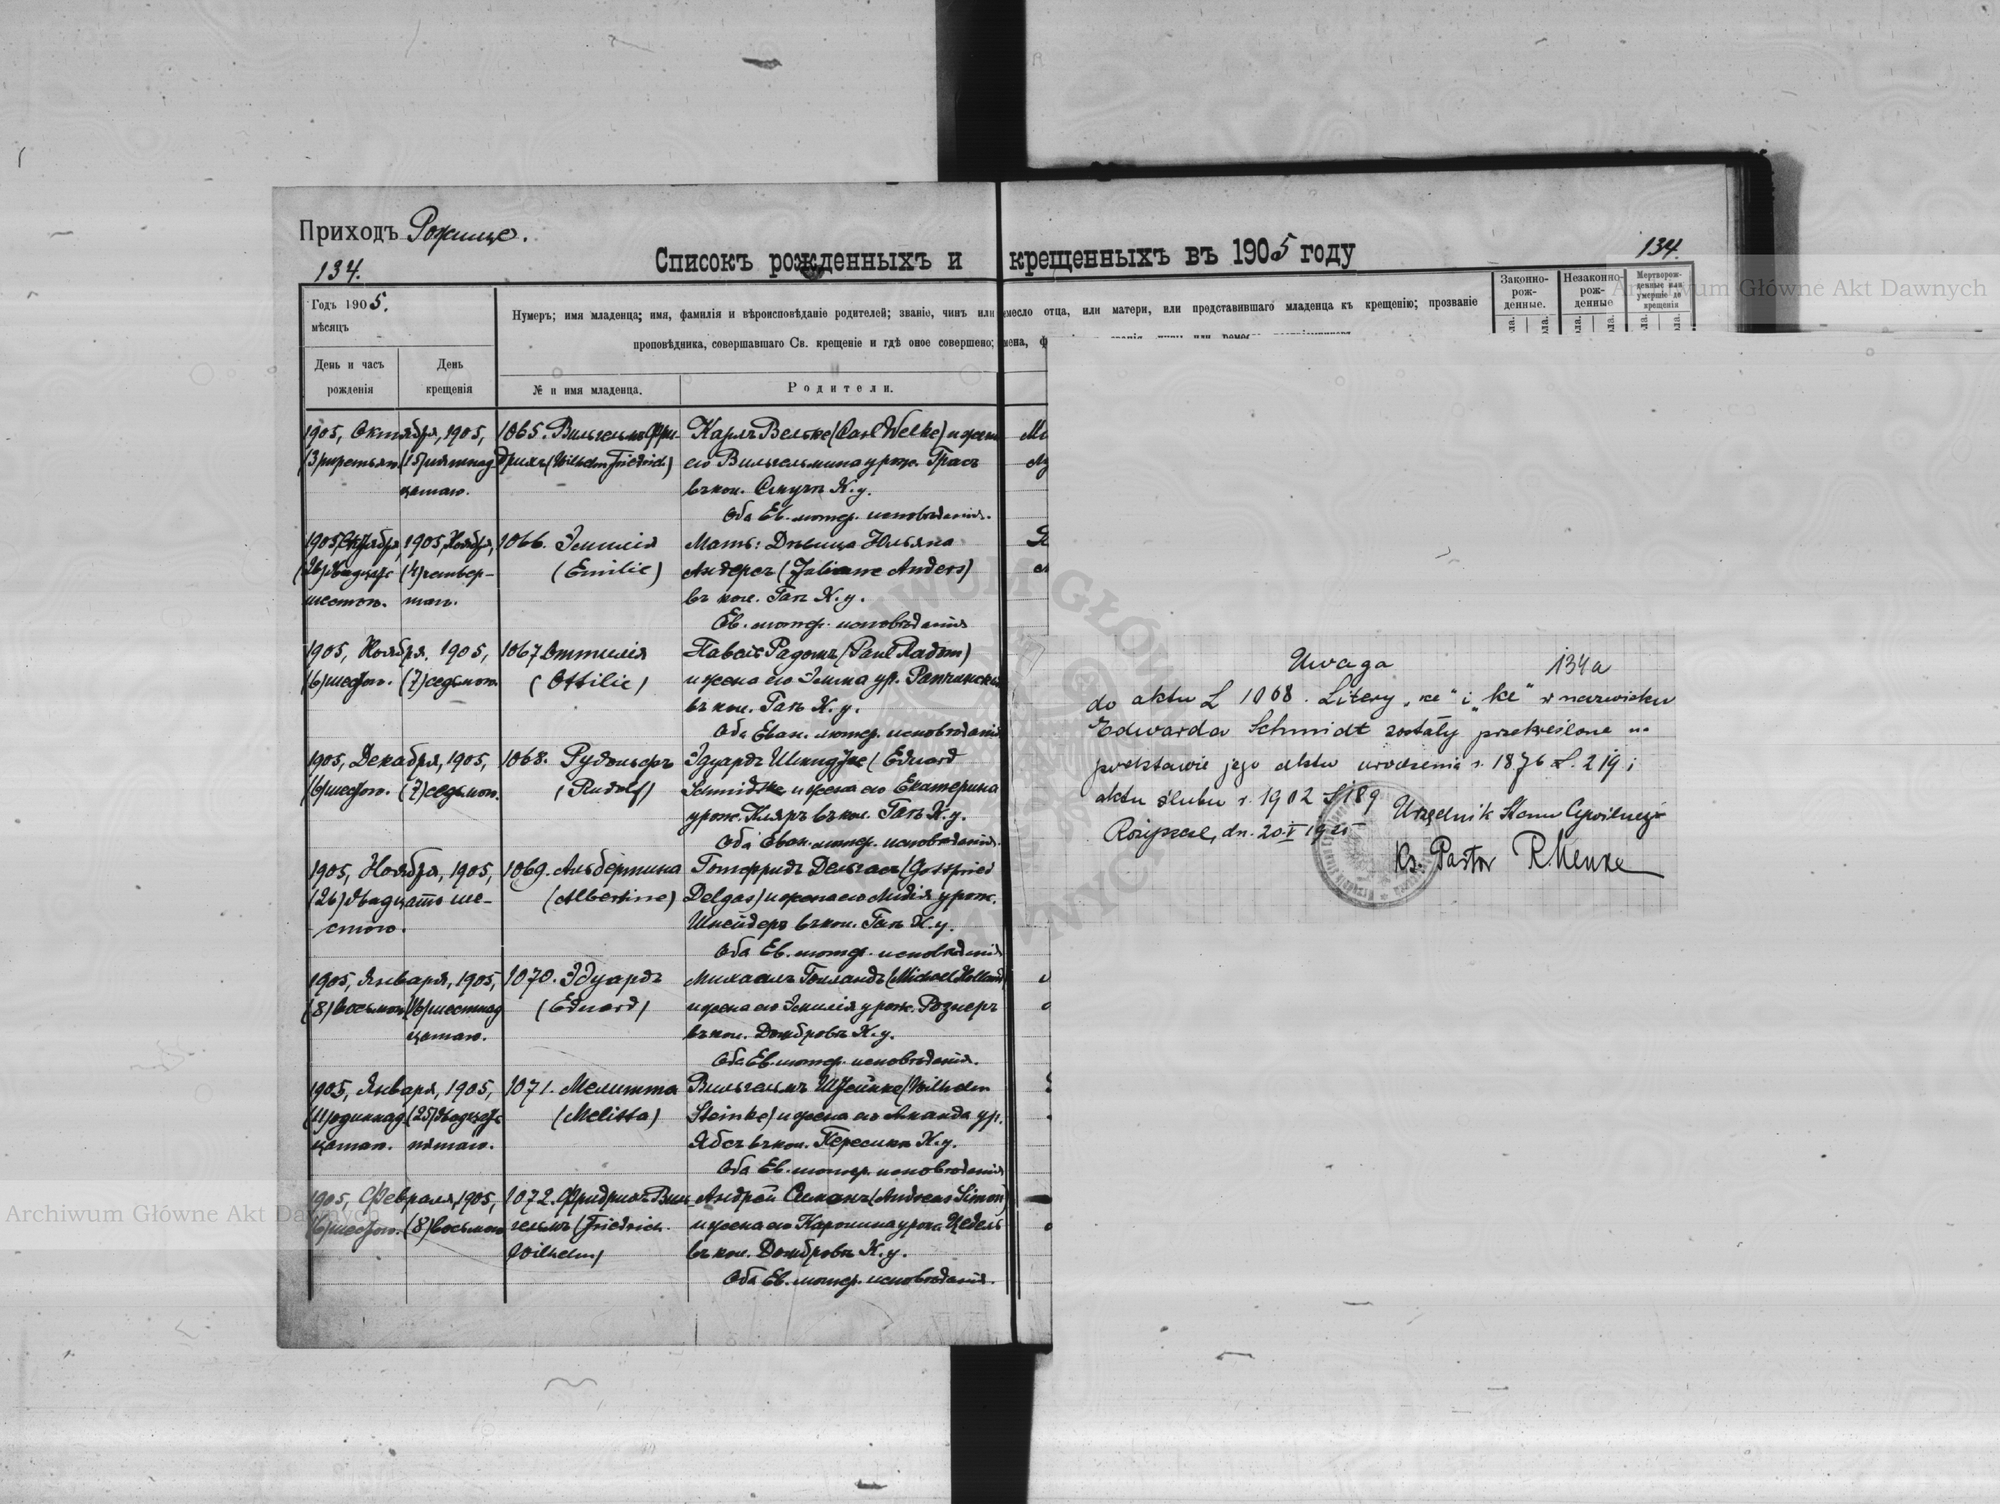 Приходъ Рожище.
134.
Списокъ рожденныхъ и крещенныхъ въ 1905 году
134.
Годъ 1905.
мѣсяцъ
День и часъ рожденія
День крещенія
Нумеръ; имя младенца; имя, фамилія и вѣроисповѣданіе родителей; званіе, чинъ или ремесло отца, или матери, или представившаго младенца къ крещенію; прозваніе
проповѣдника, совершавшаго Св. крещеніе и гдѣ оное совершено;
№ и имя младенца.
Родители.
Законно-рож-денные.
Незаконно-рож-денные
Мертворож-денные или умершіе до крещенія
1905, Октября, 1905,
(3) третьяго (15) пятнад
цатаго.
1065. Вильгельмъ Фри-
дрихъ (Wilhelm Friedrich)
Карлъ Вельке (Carl Welke) и жена
его Вильгельмина урож. Грасъ
въ кол. К. у.
Оба Ев. лютер. исповѣданія.
1905, Октября, 1905, Ноября,
(26) двадцать (4) четвер-
шестого. таго.
1066. Эмилія
(Emilie)
Мать: Дѣвица Юльяна
Андерсъ (Juliane Anders)
въ кол. Гать К. у.
Ев. лютер. исповѣданія
1905, Ноября, 1905,
(6) шестого. (7) седьмого.
1067. Оттилія
(Ottilie)
Павелъ Радомъ (Paul Radom)
и жена его Эмма ур.
въ кол. Гать К. у.
Оба Еван. лютер. исповѣданія
1905, Декабря, 1905,
(6) шестого. (7) седьмого.
1068. Рудольфъ
(Rudolf)
Эдуардъ Шмидтке (Eduard
Schmidtke и жена его Екатерина
урож. Кляръ въ кол. Гать К. у.
Оба Еван. лютер. исповѣданія.
1905, Ноября, 1905,
(26) двадцать ше-
стого.
1069. Альбертина
(Albertine)
Готфридъ Дельгасъ (Gottfried
Delgas) и жена его Лидія урож.
Шнейдеръ въ кол. Гать К. у.
Оба Ев. лютер. исповѣданія
1905, Января, 1905,
(8) восьмого (16) шестнад
цатаго.
1070. Эдуардъ
(Eduard)
Михаелъ Голландъ (Michael Holland)
и жена его Эмилія урож. Рознеръ
въ кол. Домбровъ К. у.
Оба Ев. лютер. исповѣданія.
1905, Января, 1905,
(11) одиннад (25) двадцать
цатаго. пятаго.
1071. Мелитта
(Melitta)
Вильгельмъ Штейнке (Wilhelm
Steinke) и жена его Аманда ур.
Ябсъ въ кол. К. у.
Оба Ев. лютер. исповѣданія
1905, Февраля, 1905,
(6) шестого. (8) восьмого
1072. Фридрихъ Вил
гельмъ (Friedrich
Wilhelm)
Андрей Симонъ (Andreas Simon)
и жена его Каролина урож. Цедель
въ кол. Домбровъ К. у.
Оба Ев. лютер. исповѣданія.
Uwaga 134a
do aktu L 1068. Litery „ке" i „ke" w nazwisku
Edwarda Schmidt zostały przekreślone na
podstawie jego aktu urodzenia r. 1876 L. 219 i
aktu ślubu r. 1902 L 189
Rożyszcze, dn. 20.V 19
Urzędnik Stanu Cywilnego
Ks. Pastor
Archiwum Główne Akt Dawnych
Archiwum Główne Akt Dawnych